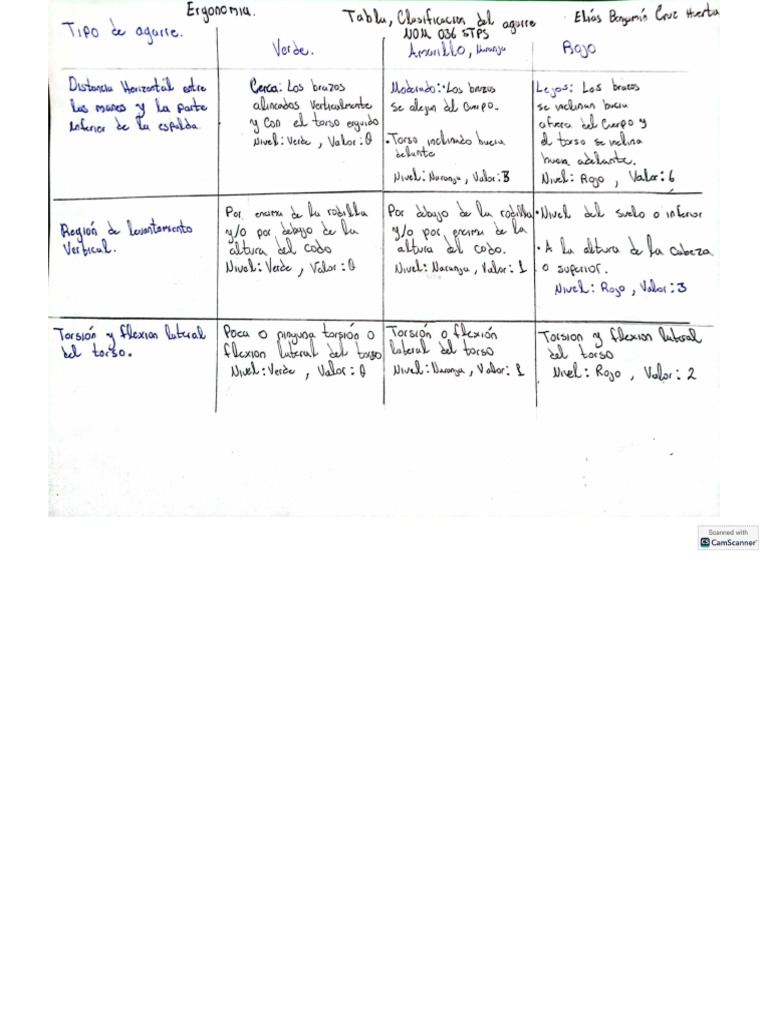 Ergonomia.
Tabla, Clasificacion del agarre
NOM 036 STPS
Elías Benjamín Cruz Huerta
Tipo de agarre.
Verde.
Amarillo, Naranja
Rojo
Distancia Horizontál entre
las manos y la parte
inferior de la espalda.
Cerca: Los brazos
alineados verticalmente
y con el torso erguido
Nivel: Verde, Valor: 0
Moderado: · Los brazos
se alejan del cuerpo.
· Torso inclinado hacia
delante
Nivel: Naranja, Valor: 3
Lejos: Los brazos
se inclinan hacia
afuera del Cuerpo y
el torso se inclina
hacia adelante.
Nivel: Rojo, Valor: 6
Región de levantamiento
Vertical.
Por encima de la rodilla
y/o por debajo de la
altura del codo
Nivel: Verde, Valor: 0
Por debajo de la rodilla
y/o por encima de la
altura del codo.
Nivel: Naranja, Valor: 1
· Nivel del suelo o inferior
· A la altura de la Cabeza
o superior.
Nivel: Rojo, Valor: 3
Torsión y flexion lateral
del torso.
Poca o ninguna torsión o
flexion lateral del torso
Nivel: Verde, Valor: 0
Torsión o flexión
lateral del torso
Nivel: Naranja, Valor: 1
Torsion y flexion lateral
del torso
Nivel: Rojo, Valor: 2
Scanned with
CS CamScanner